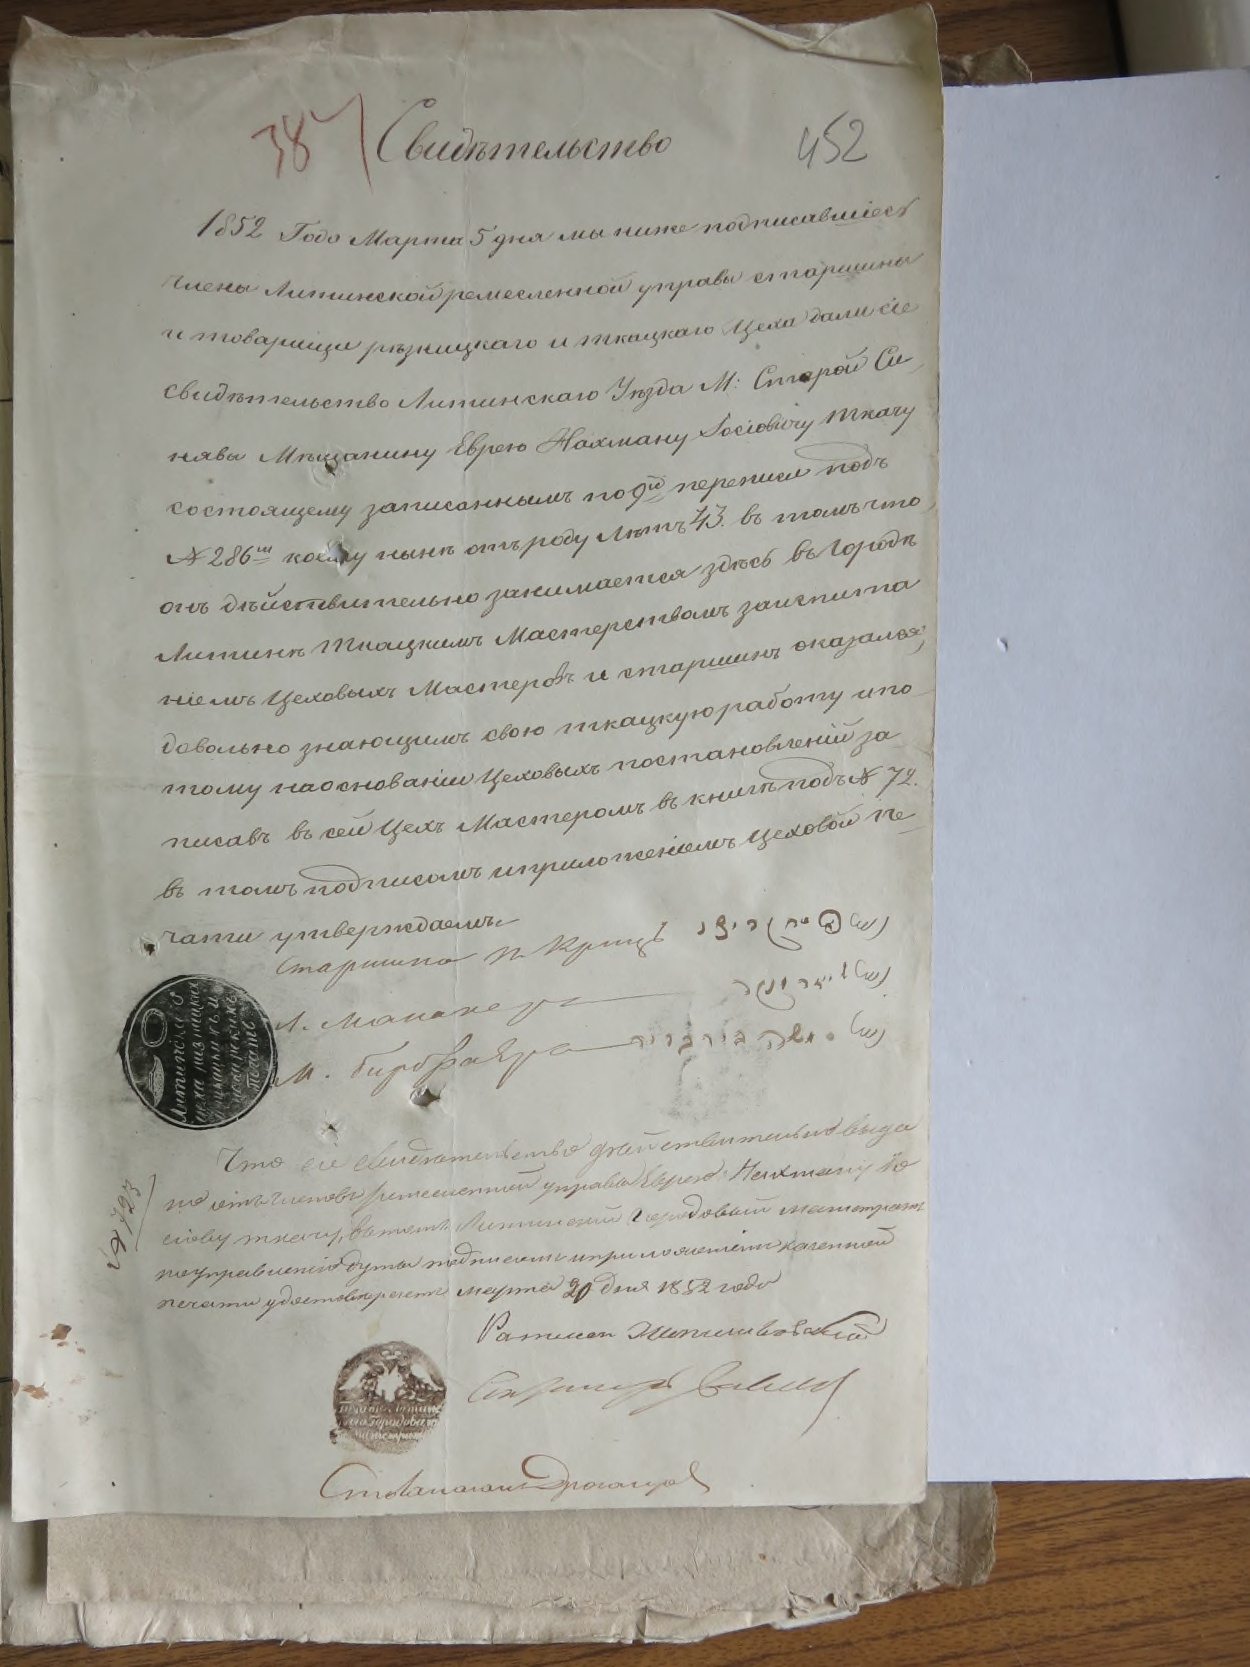 387 Свидѣтельство 452
1852 Года Марта 5 дня мы ниже подписавшіесь
члены Литинской ремесленной управы старшина
и товарищи рѣзницкаго и ткацкаго Цеха дали сіе
свидѣтельство Литинскаго Уѣзда М: Старой Си
нявы Мѣщанину Еврею Нахману Іосіовичу Ткачу
состоящему записаннымъ по 9й переписи подъ
№ 286мъ коему нынѣ отъ роду Лѣтъ 43. въ томъ что
онъ дѣйствительно занимается здѣсь въ Городѣ
Литинѣ Ткацкимъ Мастерствомъ за испыта
ніемъ Цеховыхъ Мастеровъ и старшинъ оказался
довольно знающимъ свою ткацкую работу и по
тому на основаніи Цеховыхъ постановленій за
писавъ въ сей Цехъ Мастеромъ въ книгѣ подъ № 72.
въ томъ подписомъ и приложеніемъ Цеховой пе
чати утверждаемъ
Старшина
Л.
М. Бирбраеръ משה בירברייר
Литинскаго
цеха
печать
Что сіе свидѣтельство дѣйствительно выда
но отъ членовъ ремесленной управы Еврею Нахману Іо
сіову ткачу, въ томъ Литинскій Городовый магистратъ
по управленію Думы подписомъ и приложеніемъ казенной
печати удостовѣряетъ марта 20 дня 1852 года
№ 793
Ратман
Секретарь